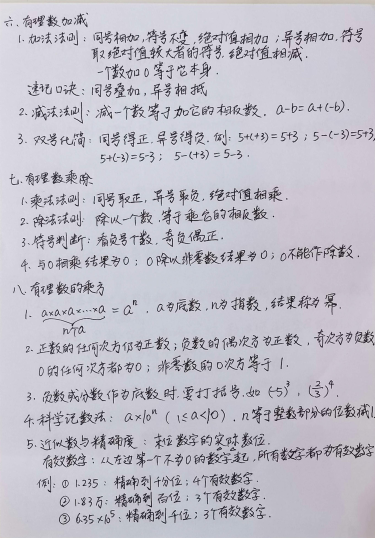 六.有理数加减
1.加法法则:同号相加,符号不变,绝对值相加;异号相加,符号
取绝对值较大者的符号.绝对值相减.
一个数加0等于它本身.
速记口诀:同号叠加,异号相抵
2.减法法则:减一个数等于加它的相反数. a-b=a+(-b).
3.双号化简:同号得正.异号得负.例:5+(+3)=5+3;5-(-3)=5+3,
5+(-3)=5-3; 5-(+3)=5-3.
七.有理数乘除
1.乘法法则:同号取正,异号取负.绝对值相乘.
2.除法法则:除以一个数,等于乘它的相反数.
3.符号判断:看负号个数,奇负偶正.
4.与0相乘结果为0;0除以非零数结果为0;0不能作除数.
八.有理数的乘方
1. a×a×a×…×a=aⁿ. a为底数,n为指数,结果称为幂.
n个a
2.正数的任何次方仍为正数;负数的偶次方为正数,奇次方为负数
0的任何次方都为0;非零数的0次方等于1.
3.负数或分数作为底数时.要打括号.如(-5)³,(2/3)⁴
4.科学记数法:a×10ⁿ(1≤a<10).n等于整数部分的位数减1
5.近似数与精确度:末位数字的实际数位.
有效数字:从左边第一个不为0的数字起,所有数字都为有效数字
例:①1.235:精确到千分位;4个有效数字.
②1.83万:精确到百位;3个有效数字.
③6.35×10⁵:精确到千位;3个有效数字.